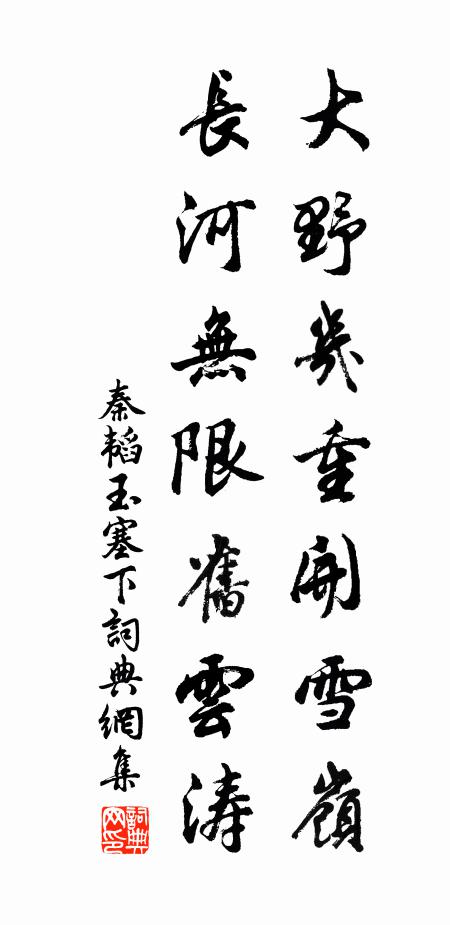 大野幾重開雪嶺
長河無限舊雲濤
秦韜玉塞下詞典網集
詞典网印